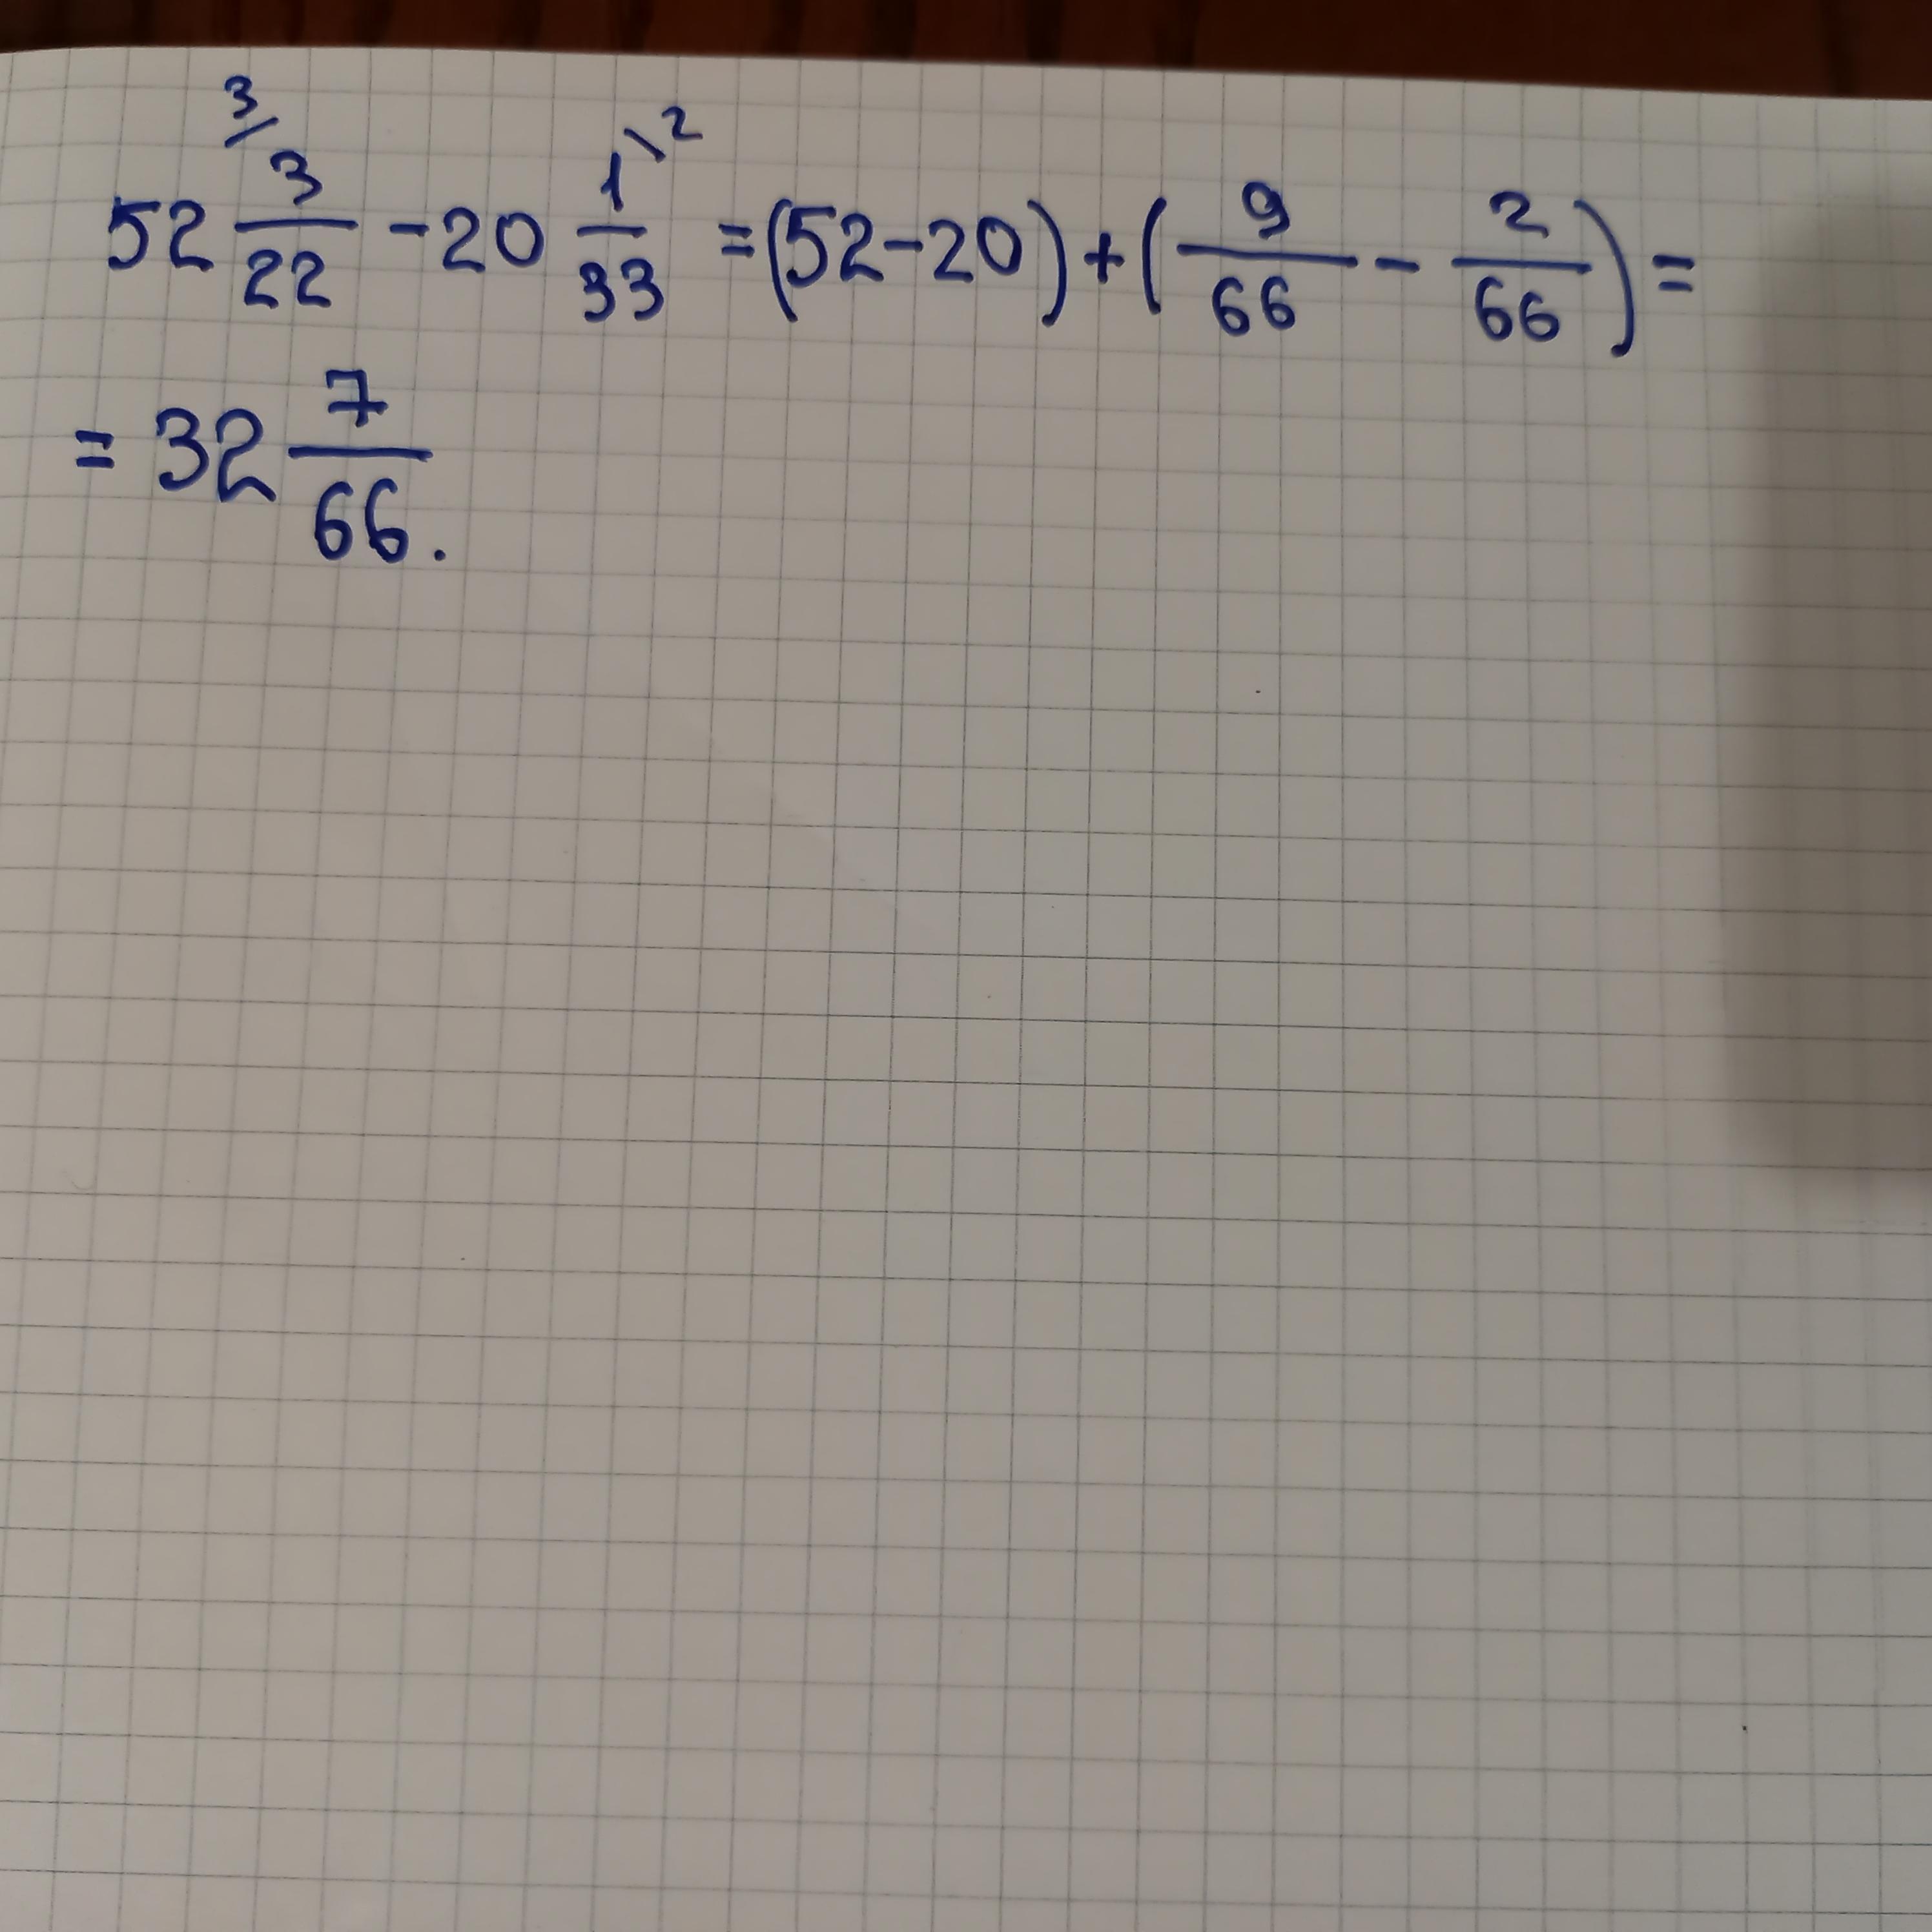 52 ³/ 3/22 - 20 1/33 \² = (52-20) + (9/66 - 2/66) =
= 32 7/66.